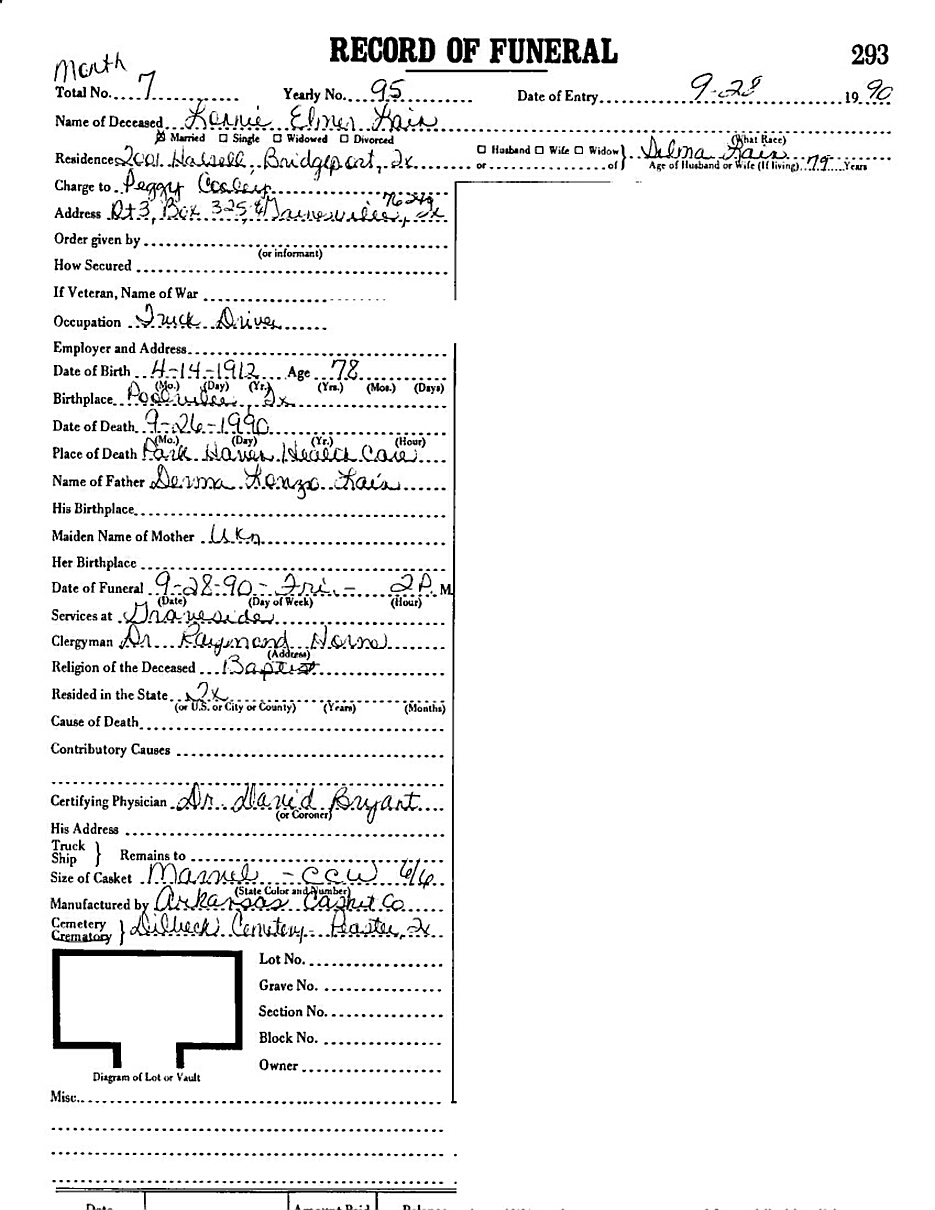 RECORD OF FUNERAL 293
Month
Total No. 7 Yearly No. 95 Date of Entry 9-28 19 90
Name of Deceased Lonnie Elmer Hair
☒ Married ☐ Single ☐ Widowed ☐ Divorced (What Race)
Residence 2001 Halsell, Bridgeport, Tx ☐ Husband ☐ Wife ☐ Widow or of } Velma Hair 79 Years
Age of Husband or Wife (If living)
Charge to Peggy Cooley
Address Rt 3, Box 325 Gainesville, Tx 76240
Order given by
(or informant)
How Secured
If Veteran, Name of War
Occupation Truck Driver
Employer and Address
Date of Birth 4-14-1912 Age 78
(Mo.) (Day) (Yr.) (Yrs.) (Mos.) (Days)
Birthplace Poolville, Tx
Date of Death 9-26-1990
(Mo.) (Day) (Yr.) (Hour)
Place of Death Park Haven Health Care
Name of Father Hair
His Birthplace
Maiden Name of Mother Ukn
Her Birthplace
Date of Funeral 9-28-90 - Fri. - 2P. M
(Date) (Day of Week) (Hour)
Services at Graveside
Clergyman Dr Raymond
(Address)
Religion of the Deceased Baptist
Resided in the State Tx
(or U.S. or City or County) (Years) (Months)
Cause of Death
Contributory Causes
Certifying Physician Dr. David Bryant
(or Coroner)
His Address
Truck
Ship } Remains to
Size of Casket - CCW 6/6
(State Color and Number)
Manufactured by Arkansas Casket Co
Cemetery
Crematory } Dilbeck Cemetery - Peaster, Tx
Lot No.
Grave No.
Section No.
Block No.
Owner
Diagram of Lot or Vault
Misc.
Date Amount Paid